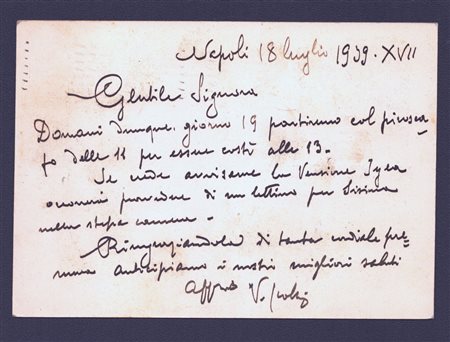 Napoli 18 luglio 1939. XVII
Gentile Signora
Domani dunque, giorno 19 partiremo col pirosca-
fo delle 11 per essere costì alle 13.
Se vede avvisame la Pensione
provvedere di un lettino per
nella stessa camera.
Ringraziandola di tanta cordiale pre-
mura anticipiamo i nostri migliori saluti